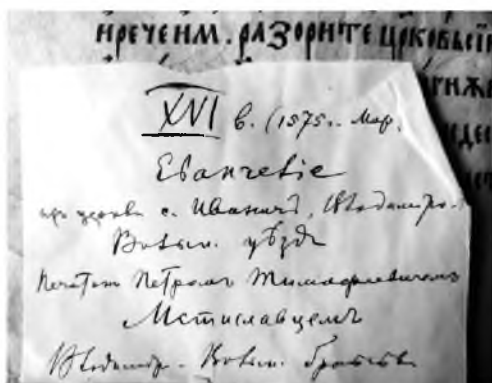 ИРЕЧЕНМ. РАЗОРИТЕ ЦРКОВЬСІЙ
XVI в. (1575.. Мар.
Евангеліе
изъ церкви с. Иваничъ, Владимиро-
Волын. уѣзда
Печатанъ Петромъ Тимофеевичемъ
Мстиславцемъ
Владимір. - Волын. братства